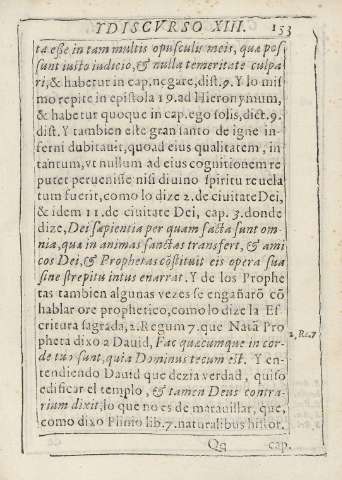 YDISCVRSO XIII. 153
ta eße in tam multis opusculis meis, quæ pos
sunt iusto iudicio, & nulla temeritate culpa
ri, & habetur in cap. negare, dist. 9. Y lo mis
mo repite in epistola 19. ad Hieronymum,
& habetur quoque in cap. ego solis, dict. 9.
dist. Y tambien este gran santo de igne in
ferni dubitauit, quoad eius qualitatem, in
tantum, vt nullum ad eius cognitionem re
putet peruenisse nisi diuino spiritu reuela
tum fuerit, como lo dize 2. de ciuitate Dei,
& idem 11. de ciuitate Dei, cap. 3. donde
dize, Dei sapientia per quam facta sunt om-
nia, qua in animas sanctas transfert, & ami
cos Dei, & Prophetas cõstituit eis opera sua
sine strepitu intus enarrat. Y de los Prophe
tas tambien algunas vezes se engañarõ cõ
hablar ore prophetico, como lo dize la Es
critura sagrada, 2. Regum 7. que Natã Pro
pheta dixo a Dauid, Fac quæcumque in cor-
de tuo sunt, quia Dominus tecum est. Y en-
tendiendo Dauid que dezia verdad, quiso
edificar el templo, & tamen Deus contra-
rium dixit, lo que no es de marauillar, que,
como dixo Plinio lib. 7. naturalibus histor.
2. Re. 7
Qq cap.